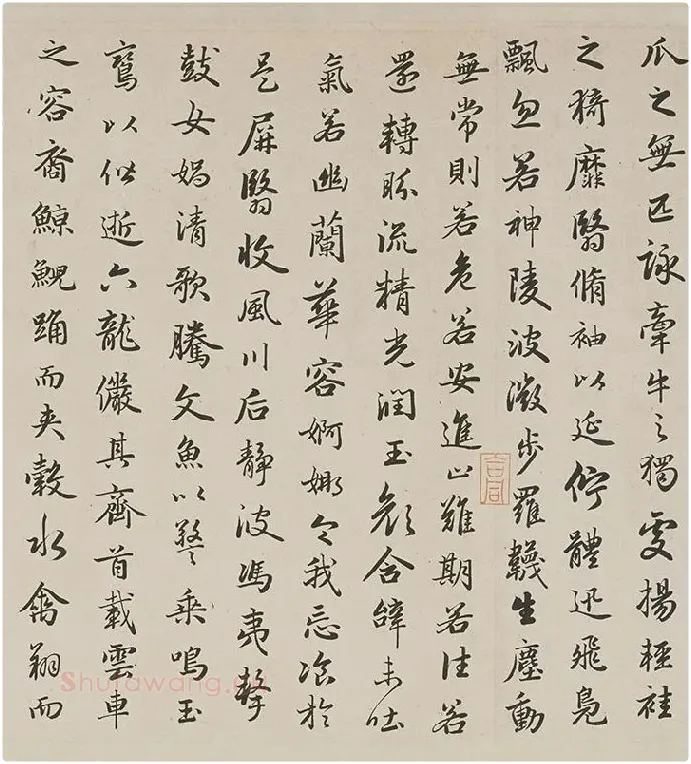 瓜之無匹詠牽牛之獨處揚輕袿
之猗靡翳脩袖以延佇體迅飛鳧
飄忽若神陵波微步羅韈生塵動
無常則若危若安進止難期若往若
還轉眄流精光潤玉顏含辭未吐
氣若幽蘭華容婀娜令我忘飡於
是屏翳收風川后靜波馮夷擊
鼓女媧清歌騰文魚以警乘鳴玉
鸞以偕逝六龍儼其齊首載雲車
之容裔鯨鯢踊而夾轂水禽翔而
Shufawang.cn